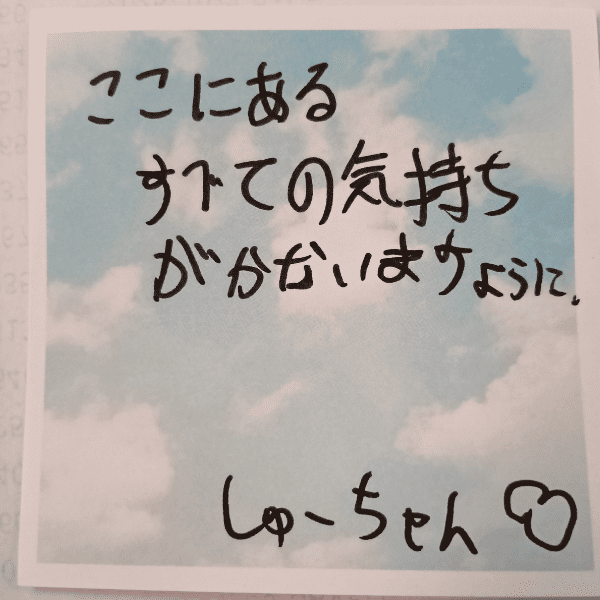 ここにある
すべての気持ち
がかないますように.
しゅーちゃん♡